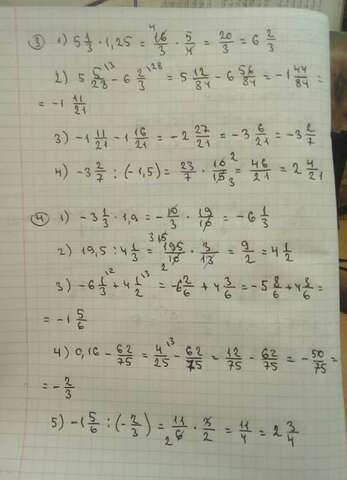 ③ 1) 5 1/3 · 1,25 = 16/3 · 5/4 = 20/3 = 6 2/3
2) 5 5/28 - 6 2/3 = 5 12/84 - 6 56/84 = -1 44/84 =
= -1 11/21
3) -1 11/21 - 1 16/21 = -2 27/21 = -3 6/21 = -3 2/7
4) -3 2/7 : (-1,5) = 23/7 · 10/15 = 46/21 = 2 4/21
④ 1) -3 1/3 · 1,9 = -10/3 · 19/10 = -6 1/3
2) 19,5 : 4 1/3 = 195/10 · 3/13 = 9/2 = 4 1/2
3) -6 1/3 + 4 1/2 = -6 2/6 + 4 3/6 = -5 8/6 + 4 3/6 =
= -1 5/6
4) 0,16 - 62/75 = 4/25 - 62/75 = 12/75 - 62/75 = -50/75 =
= -2/3
5) -1 5/6 : (-2/3) = 11/6 · 3/2 = 11/4 = 2 3/4